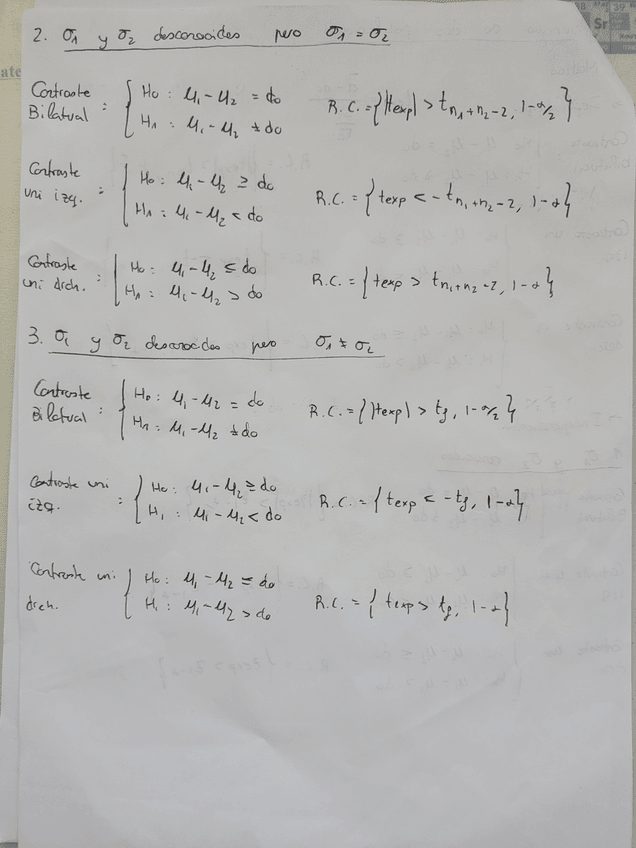 2. σ1 y σ2 desconocidas pero σ1 = σ2
Contraste Bilatual : { H0 : μ1 - μ2 = d0
H1 : μ1 - μ2 ≠ d0
R.C. = {|texp| > t n1+n2-2, 1-α/2}
Contraste uni izq. : { H0 : μ1 - μ2 ≥ d0
H1 : μ1 - μ2 < d0
R.C. = {texp < -t n1+n2-2, 1-α}
Contraste uni drch. : { H0 : μ1 - μ2 ≤ d0
H1 : μ1 - μ2 > d0
R.C. = {texp > t n1+n2-2, 1-α}
3. σ1 y σ2 desconocidas pero σ1 ≠ σ2
Contraste Bilatual : { H0 : μ1 - μ2 = d0
H1 : μ1 - μ2 ≠ d0
R.C. = {|texp| > tg, 1-α/2}
Contraste uni izq. : { H0 : μ1 - μ2 ≥ d0
H1 : μ1 - μ2 < d0
R.C. = {texp < -tg, 1-α}
Contraste uni drch. { H0 : μ1 - μ2 ≤ d0
H1 : μ1 - μ2 > d0
R.C. = {texp > tg, 1-α}
39
Sr